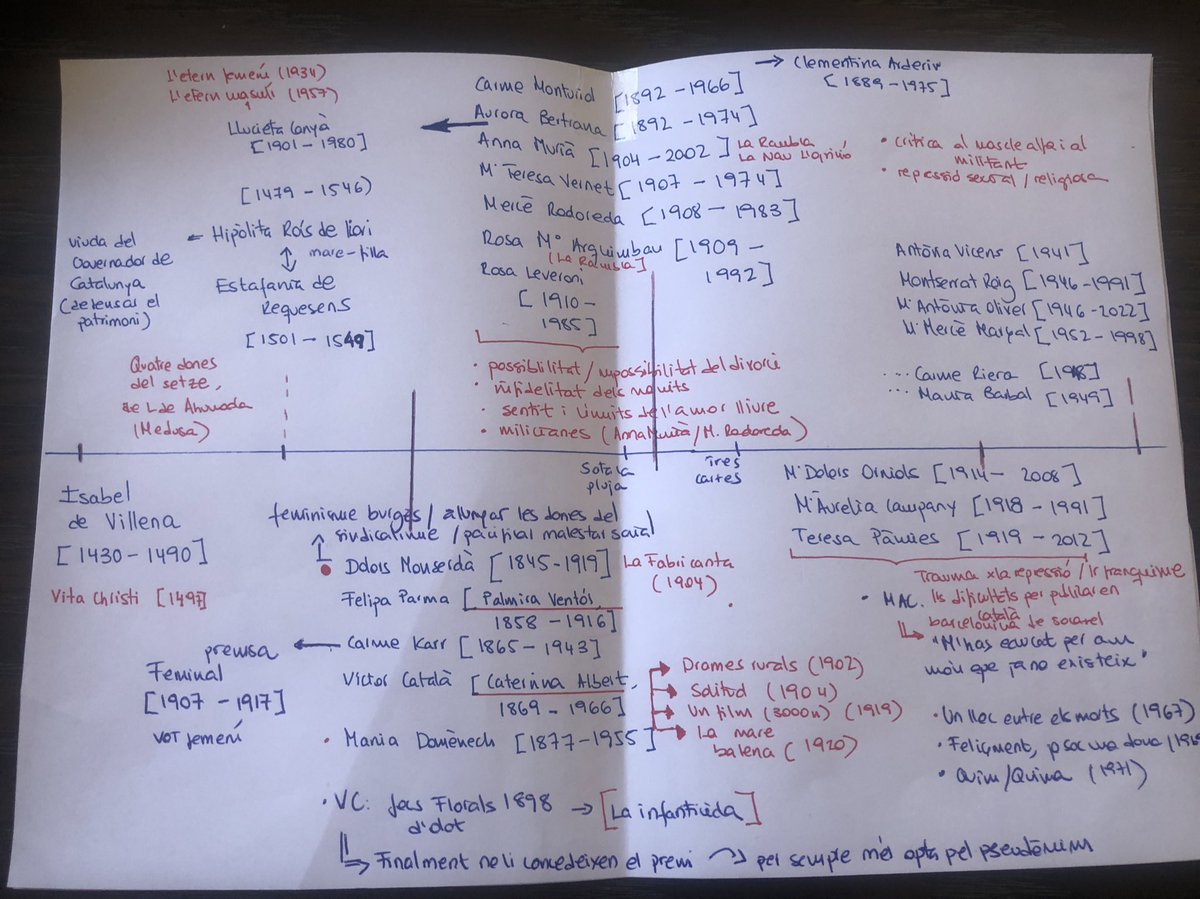 L'etern femení (1934)
L'etern masculí (1957)
Llucieta Canyà
[1901 - 1980]
[1479 - 1546)
← Hipòlita Roís de Liori
↕ mare-filla
Estefania de
Requesens
[1501 - 1549]
viuda del
Governador de
Catalunya
(defensar el
patrimoni)
Quatre dones
del setze,
de L de Ahumada
(Medusa)
Carme Monturiol [1892 - 1966]
← Aurora Bertrana [1892 - 1974]
Anna Murià [1904 - 2002] La Rambla
M. Teresa Vernet [1907 - 1974]
Mercè Rodoreda [1908 - 1983]
Rosa Mª Arquimbau [1909 -
1992]
(La Rambla)
Rosa Leveroni
[1910 -
1985]
• possibilitat / impossibilitat del divorci
• infidelitat dels marits
• sentit i límits de l'amor lliure
• milicianes (Anna Murià / M. Rodoreda)
→ Clementina Arderiu
[1889 - 1975]
• crítica al mascle alfa i al
militant
• repressió sexual / religiosa
Antònia Vicens [1941]
Montserrat Roig [1946 - 1991]
Mª Antònia Oliver [1946 - 2022]
M. Mercè Marçal [1952 - 1998]
... Carme Riera [1948]
... Maria Barbal [1949]
Sota la
pluja
Tres
cartes
Isabel
de Villena
[1430 - 1490]
Vita Christi [1497]
feminisme burgès / allunyar les dones del
sindicalisme / pacificar malestar social
• Dolors Monserdà [1845 - 1919] La Fabricanta
(1904)
Felipa Parma [Palmira Ventós,
1858 - 1916]
premsa ← Carme Karr [1865 - 1943]
Feminal
[1907 - 1917]
vot femení
Víctor Català [Caterina Albert,
1869 - 1966]
→ Drames rurals (1902)
→ Solitud (1904)
→ Un film (3000m) (1919)
→ La mare
balena (1920)
• Maria Domènech [1877 - 1955]
• VC: Jocs Florals 1898 → [La infanticida]
d'Olot
Finalment no li concedeixen el premi → per sempre més opta pel pseudònim
M. Dolors Orriols [1914 - 2008]
M. Aurèlia Capmany [1918 - 1991]
Teresa Pàmies [1919 - 2012]
Trauma x la repressió / franquisme
• MAC. les dificultats per publicar en
català
barcelonina de
"M'has educat per a un
món que ja no existeix"
• Un lloc entre els morts (1967)
• Feliçment, jo sóc una dona (1969
• Quim/Quima (1971)